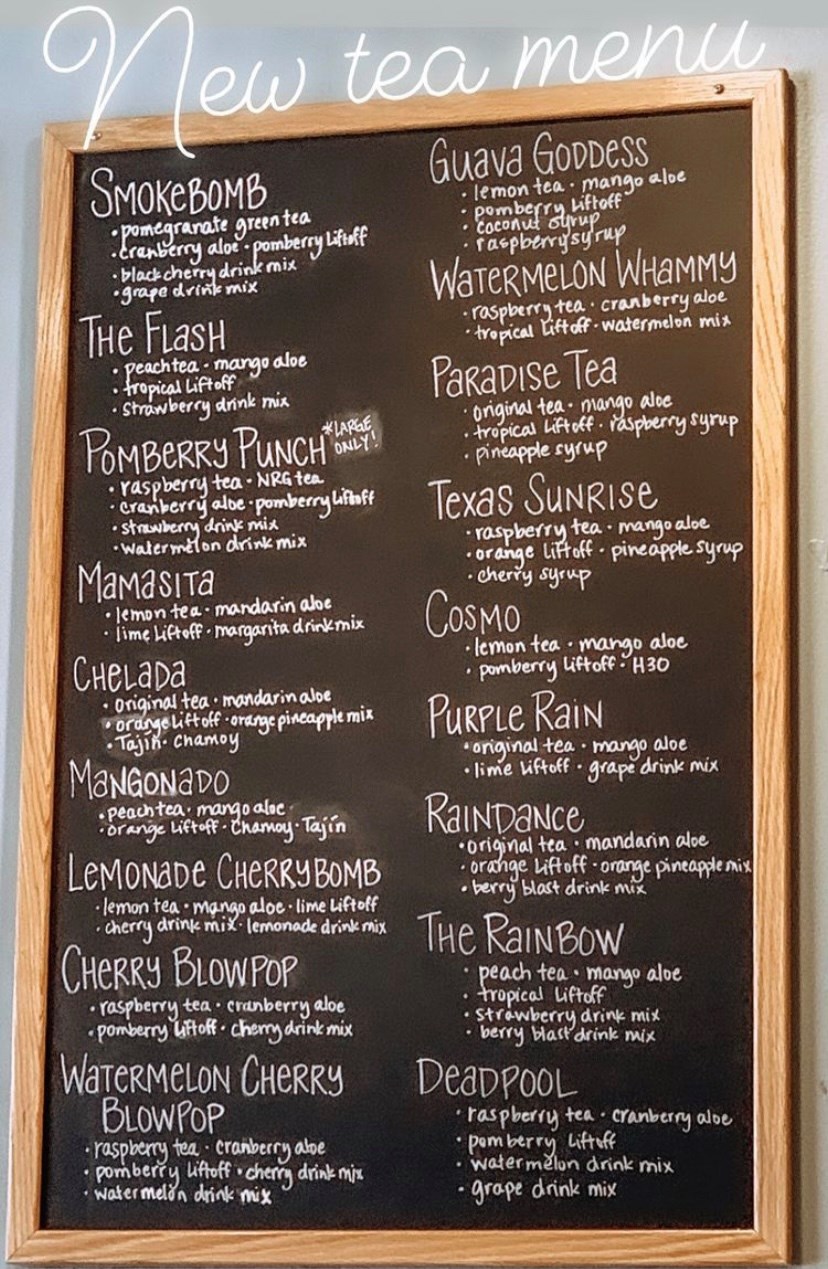 New tea menu
SMOKEBOMB
• pomegranate green tea
• cranberry aloe • pomberry Liftoff
• black cherry drink mix
• grape drink mix
THE FLASH
• peach tea • mango aloe
• tropical Liftoff
• strawberry drink mix
POMBERRY PUNCH *LARGE ONLY!
• raspberry tea • NRG tea
• cranberry aloe • pomberry Liftoff
• strawberry drink mix
• watermelon drink mix
MAMASITA
• lemon tea • mandarin aloe
• lime Liftoff • margarita drink mix
CHELADA
• original tea • mandarin aloe
• orange Liftoff • orange pineapple mix
• Tajín • Chamoy
MANGONADO
• peach tea • mango aloe
• orange Liftoff • Chamoy • Tajín
LEMONADE CHERRYBOMB
• lemon tea • mango aloe • lime Liftoff
• cherry drink mix • lemonade drink mix
CHERRY BLOWPOP
• raspberry tea • cranberry aloe
• pomberry Liftoff • cherry drink mix
WATERMELON CHERRY
BLOWPOP
• raspberry tea • cranberry aloe
• pomberry Liftoff • cherry drink mix
• watermelon drink mix
GUAVA GODDESS
• lemon tea • mango aloe
• pomberry Liftoff
• coconut syrup
• raspberry syrup
WATERMELON WHAMMY
• raspberry tea • cranberry aloe
• tropical Liftoff • watermelon mix
PARADISE TEA
• original tea • mango aloe
• tropical Liftoff • raspberry syrup
• pineapple syrup
TEXAS SUNRISE
• raspberry tea • mango aloe
• orange Liftoff • pineapple syrup
• cherry syrup
COSMO
• lemon tea • mango aloe
• pomberry Liftoff • H3O
PURPLE RAIN
• original tea • mango aloe
• lime Liftoff • grape drink mix
RAINDANCE
• original tea • mandarin aloe
• orange Liftoff • orange pineapple mix
• berry blast drink mix
THE RAINBOW
• peach tea • mango aloe
• tropical Liftoff
• strawberry drink mix
• berry blast drink mix
DEADPOOL
• raspberry tea • cranberry aloe
• pomberry Liftoff
• watermelon drink mix
• grape drink mix